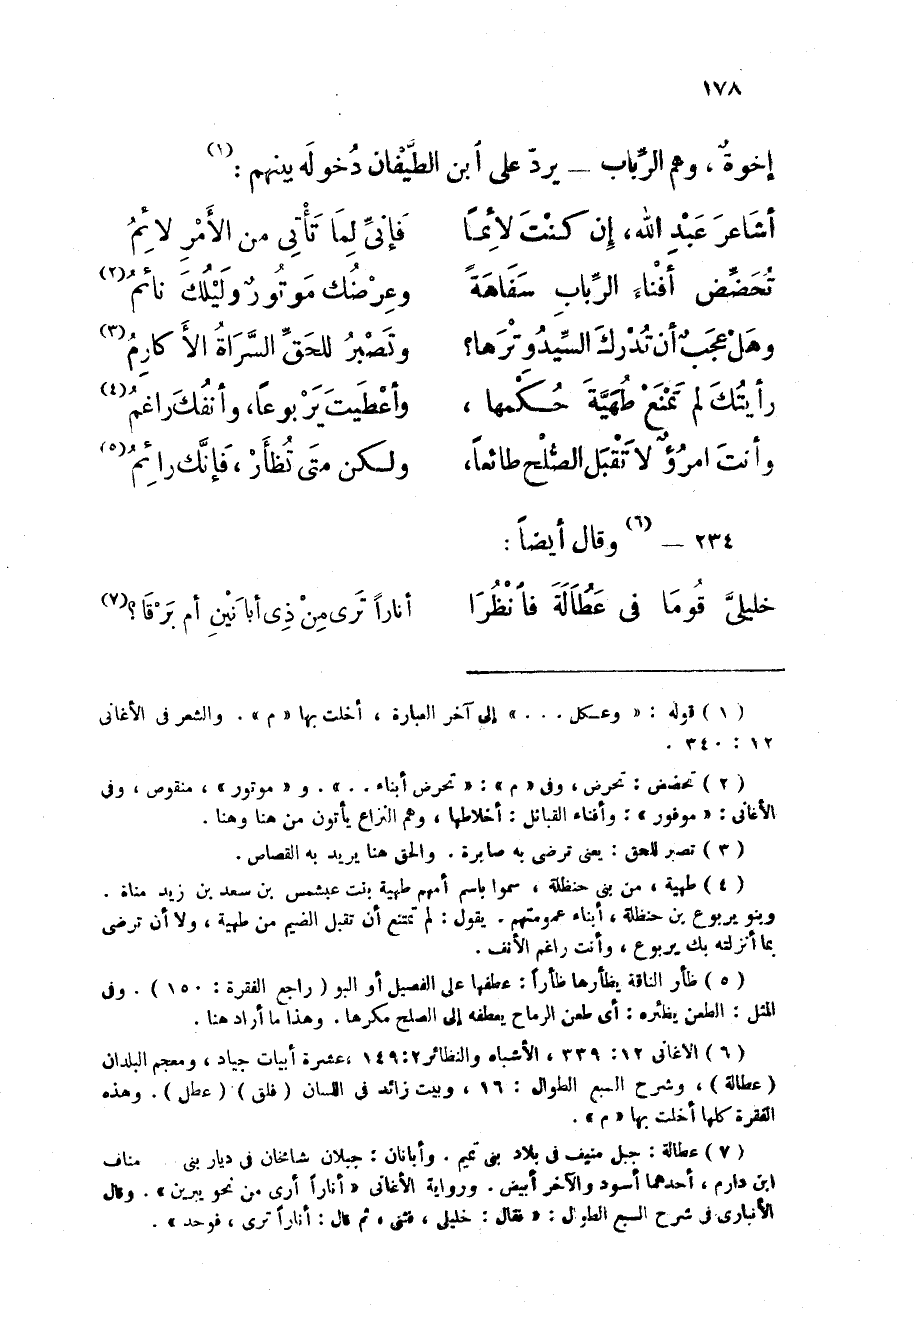 ١٧٨
إخوةٌ ، وهم الرِّباب — يردّ على أبن الطَّيْفان دُخولَه بينهم :(١)
أشَاعرَ عَبْدِ الله، إِن كنْتَ لأئماً فَإنيِّ لِمَا تَأْتِى من الأَمْرِ لائمُ
تُحَضِّض أفْناء الرِّبابِ سَفَاهَةً وعِرْضُك مَوتُورٌ ولَيْلُكَ نائمُ(٢)
وهَلْ عجَبٌ أن تُدْرِكَ السِّيدُ وِتْرَها؟ وتَصْبِرُ للحَقِّ السَّرَاةُ الأكارِمُ(٣)
رأيتُكَ لم تَمْنَعْ طُهَيَّةَ حُكْمها ، وأعْطَيتَ يَرْبوعاً، وأنفُكَ راغمُ(٤)
وأنتَ امرُؤٌ لا تَقْبَل الصُّلْح طائعاً، ولكن متَى تُظْأَرْ ، فَإنَّك رائمُ(٥)
٢٣٤ — (٦) وقال أيضاً :
خليليَّ قُومَا فى عَطَالَةَ فأنْظُرَا أناراً تَرى مِنْ ذِى أبانَيْنِ أم بَرْقَا؟(٧)
( ١ ) قوله : « وعكل . . . » إلى آخر العبارة ، أخلت بها « م » . والشعر فى الأغانى
١٢ : ٣٤٠ .
( ٢ ) تحضض : تحرض ، وفى « م » : « تحرض أبناء . . » . و « موتور » ، منقوص ، وفى
الأغانى : « موفور » : وأفناء القبائل : أخلاطها ، وهم النزاع يأتون من هنا وهنا .
( ٣ ) تصبر للحق : يعنى ترضى به صابرة . والحق هنا يريد به القصاص .
( ٤ ) طهية ، من بنى حنظلة ، سموا باسم أمهم طهية بنت عبشمس بن سعد بن زيد مناة .
وبنو يربوع بن حنظلة ، أبناء عمومتهم . يقول : لم تمتنع أن تقبل الضيم من طهية ، ولا أن ترضى
بما أنزلته بك يربوع ، وأنت راغم الأنف .
( ٥ ) ظأر الناقة يظأرها ظأراً : عطفها على الفصيل أو البو ( راجع الفقرة : ١٥٠ ) . وفى
المثل : الطعن يظئره : أى طعن الرماح يعطفه إلى الصلح مكرها . وهذا ما أراد هنا .
( ٦ ) الاغانى ١٢ : ٣٣٩ ، الأشباه والنظائر ٢ : ١٤٩ ، عشرة أبيات جياد ، ومعجم البلدان
( عطالة ) ، وشرح السبع الطوال : ١٦ ، وبيت زائد فى اللسان ( فلق ) ( عطل ) . وهذه
الفقرة كلها أخلت بها « م » .
( ٧ ) عطالة : جبل منيف فى بلاد بنى تميم . وأبانان : جبلان شامخان فى ديار بنى مناف
ابن دارم ، أحدهما أسود والآخر أبيض . ورواية الأغانى « أناراً أرى من نحو يبرين » . وقال
الأنبارى فى شرح السبع الطوال : « فقال : خليلى ، فثنى ، ثم قال : أناراً ترى ، فوحد » .